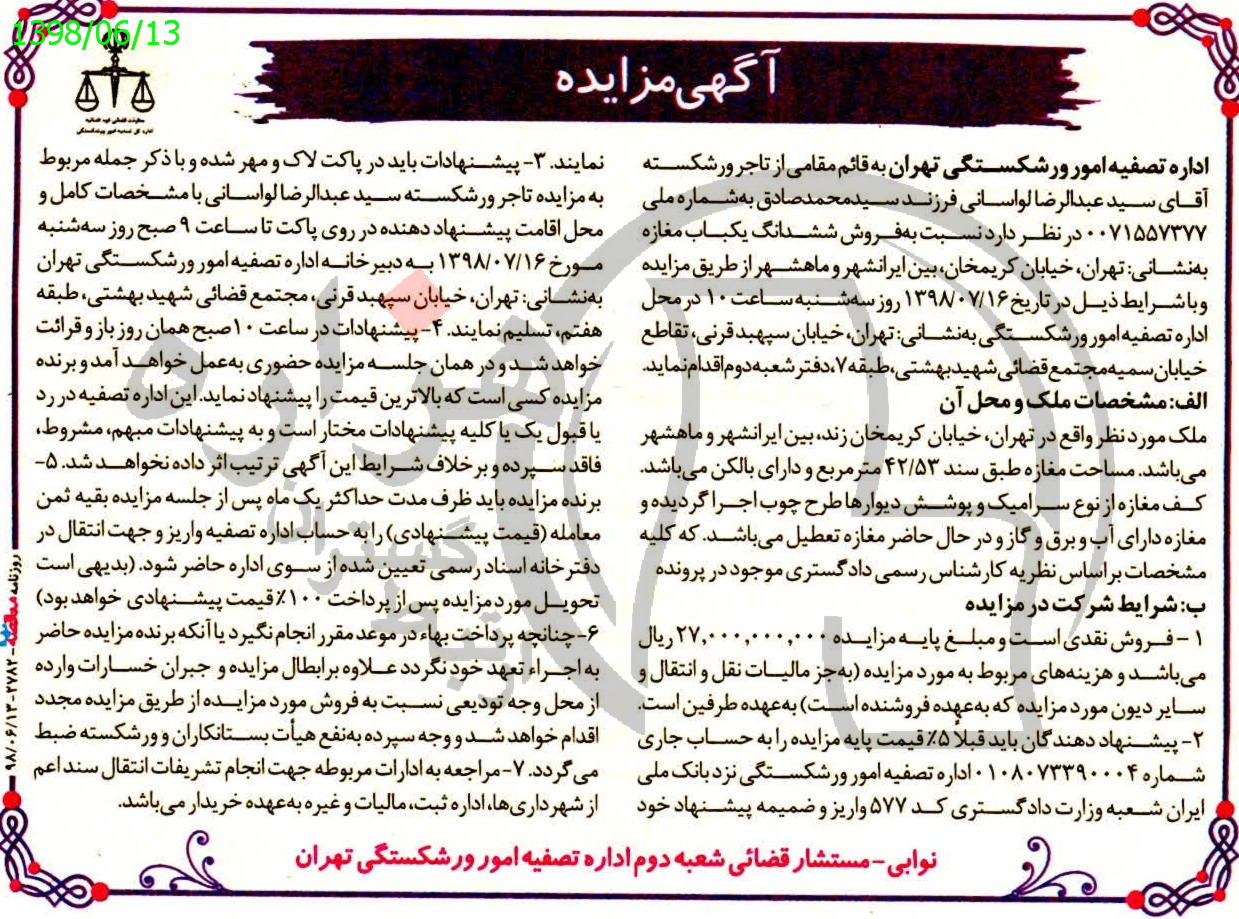 1398/06/13
آگهی مزایده
اداره تصفیه امور ورشکستگی تهران به قائم مقامی از تاجر ورشکسته
آقای سید عبدالرضا لواسانی فرزند سیدمحمدصادق به‌شماره ملی
۰۰۷۱۵۵۷۳۷۷ در نظر دارد نسبت به‌فروش ششدانگ یکباب مغازه
به‌نشانی: تهران، خیابان کریمخان، بین ایرانشهر و ماهشهر از طریق مزایده
و با شرایط ذیل در تاریخ ۱۳۹۸/۰۷/۱۶ روز سه‌شنبه ساعت ۱۰ در محل
اداره تصفیه امور ورشکستگی به‌نشانی: تهران، خیابان سپهبد قرنی، تقاطع
خیابان سمیه مجتمع قضائی شهید بهشتی، طبقه ۷، دفتر شعبه دوم اقدام نماید.
الف: مشخصات ملک و محل آن
ملک مورد نظر واقع در تهران، خیابان کریمخان زند، بین ایرانشهر و ماهشهر
می‌باشد. مساحت مغازه طبق سند ۴۲/۵۳ مترمربع و دارای بالکن می‌باشد.
کف مغازه از نوع سرامیک و پوشش دیوارها طرح چوب اجرا گردیده و
مغازه دارای آب و برق و گاز و در حال حاضر مغازه تعطیل می‌باشد. که کلیه
مشخصات براساس نظریه کارشناس رسمی دادگستری موجود در پرونده
ب: شرایط شرکت در مزایده
۱- فروش نقدی است و مبلغ پایه مزایده ۲۷,۰۰۰,۰۰۰,۰۰۰ ریال
می‌باشد و هزینه‌های مربوط به مورد مزایده (به‌جز مالیات نقل و انتقال و
سایر دیون مورد مزایده که به‌عهده فروشنده است) به‌عهده طرفین است.
۲- پیشنهاد دهندگان باید قبلاً ۵٪ قیمت پایه مزایده را به حساب جاری
شماره ۰۱۰۸۰۷۳۳۹۰۰۰۴ اداره تصفیه امور ورشکستگی نزد بانک ملی
ایران شعبه وزارت دادگستری کد ۵۷۷ واریز و ضمیمه پیشنهاد خود
نمایند. ۳- پیشنهادات باید در پاکت لاک و مهر شده و با ذکر جمله مربوط
به مزایده تاجر ورشکسته سید عبدالرضا لواسانی با مشخصات کامل و
محل اقامت پیشنهاد دهنده در روی پاکت تا ساعت ۹ صبح روز سه‌شنبه
مورخ ۱۳۹۸/۰۷/۱۶ به دبیرخانه اداره تصفیه امور ورشکستگی تهران
به‌نشانی: تهران، خیابان سپهبد قرنی، مجتمع قضائی شهید بهشتی، طبقه
هفتم، تسلیم نمایند. ۴- پیشنهادات در ساعت ۱۰ صبح همان روز باز و قرائت
خواهد شد و در همان جلسه مزایده حضوری به‌عمل خواهد آمد و برنده
مزایده کسی است که بالاترین قیمت را پیشنهاد نماید. این اداره تصفیه در رد
یا قبول یک یا کلیه پیشنهادات مختار است و به پیشنهادات مبهم، مشروط،
فاقد سپرده و برخلاف شرایط این آگهی ترتیب اثر داده نخواهد شد. ۵-
برنده مزایده باید ظرف مدت حداکثر یک ماه پس از جلسه مزایده بقیه ثمن
معامله (قیمت پیشنهادی) را به حساب اداره تصفیه واریز و جهت انتقال در
دفترخانه اسناد رسمی تعیین شده از سوی اداره حاضر شود. (بدیهی است
تحویل مورد مزایده پس از پرداخت ۱۰۰٪ قیمت پیشنهادی خواهد بود)
۶- چنانچه پرداخت بهاء در موعد مقرر انجام نگیرد یا آنکه برنده مزایده حاضر
به اجراء تعهد خود نگردد علاوه بر ابطال مزایده و جبران خسارات وارده
از محل وجه تودیعی نسبت به فروش مورد مزایده از طریق مزایده مجدد
اقدام خواهد شد و وجه سپرده به‌نفع هیأت بستانکاران و ورشکسته ضبط
می‌گردد. ۷- مراجعه به ادارات مربوطه جهت انجام تشریفات انتقال سند اعم
از شهرداری‌ها، اداره ثبت، مالیات و غیره به‌عهده خریدار می‌باشد.
نوابی- مستشار قضائی شعبه دوم اداره تصفیه امور ورشکستگی تهران
روزنامه مناقصه - ۲۷۸۲ - ۹۸/۰۶/۱۳
هزاره